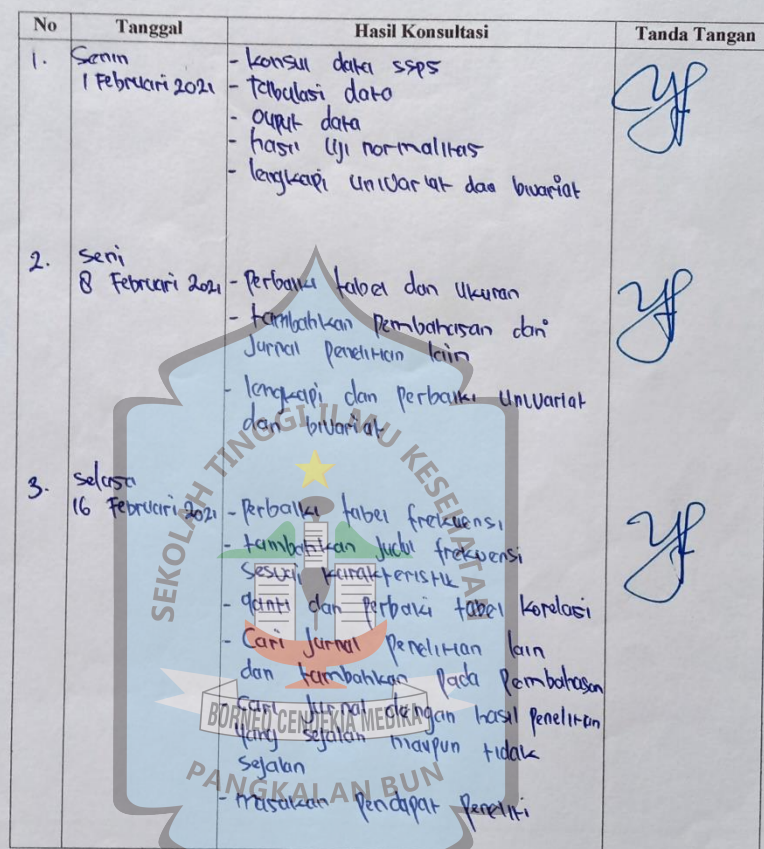 No Tanggal Hasil Konsultasi Tanda Tangan
1. Senin - konsul data ssps
1 Februari 2021 - tabulasi data
- ouput data
- hasil uji normalitas
- lengkapi univariat dan bivariat
2. Seni
8 Februari 2021 - Perbaiki tabel dan Ukuran
- tambahkan Pembahasan dan
Jurnal Penelitian lain
- lengkapi dan Perbaiki Univariat
dan bivariat
3. Selasa
16 Februari 2021 - Perbaiki tabel frekuensi
- tambahkan judul frekuensi
sesuai karakteristik
- ganti dan Perbaiki tabel korelasi
- Cari Jurnal Penelitian lain
dan tambahkan Pada Pembahasan
Cari Jurnal dengan hasil Penelitian
yang sejalan maupun tidak
sejalan
- masukan Pendapat Peneliti
SEKOLAH TINGGI ILMU KESEHATAN
BORNEO CENDEKIA MEDIKA
PANGKALAN BUN